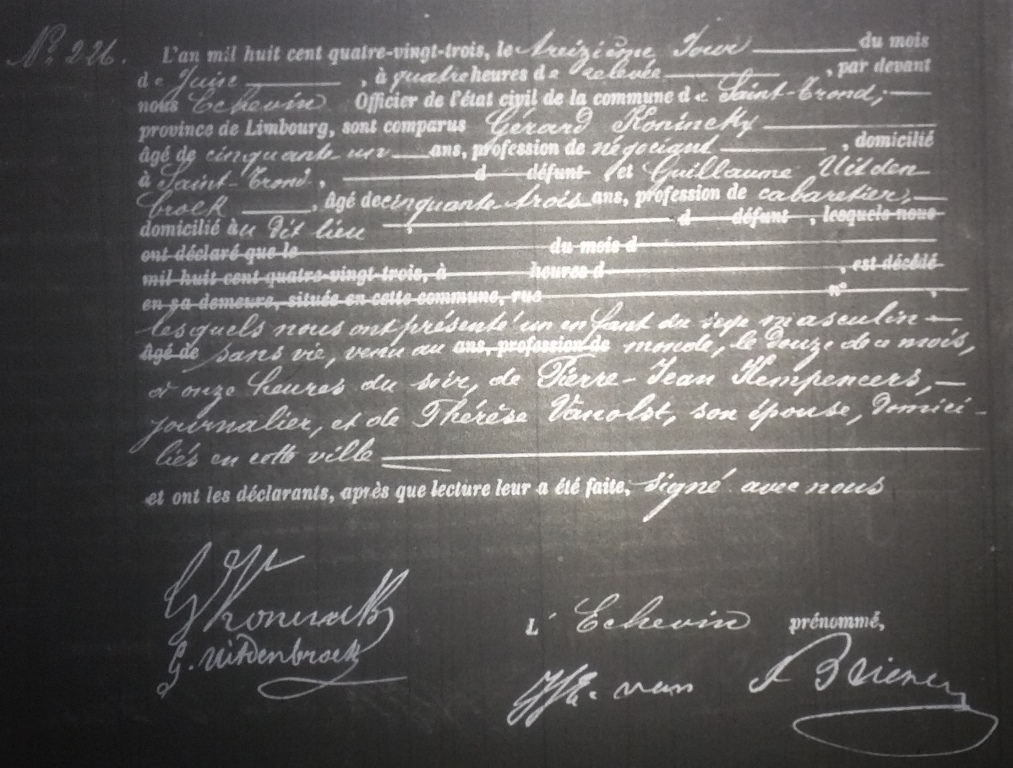 N° 226.
L'an mil huit cent quatre-vingt-trois, le treizième Jour du mois
de Juin, à quatre heures de relevée, par devant
nous Echevin Officier de l'état civil de la commune de Saint-Trond;
province de Limbourg, sont comparus Gérard Koninckx
âgé de cinquante un ans, profession de négociant, domicilié
à Saint-Trond, d défunt et Guillaume Uitden
broek, âgé de cinquante-trois ans, profession de cabaretier,
domicilié au dit lieu, d défunt, lesquels nous
ont déclaré que le du mois d
mil huit cent quatre-vingt-trois, à heures d, est décédé
en sa demeure, située en cette commune, rue n°,
lesquels nous ont présenté un enfant du sexe masculin
âgé de sans vie, venu au ans, profession de monde, le douze de ce mois,
à onze heures du soir, de Pierre-Jean Kempeneers,
journalier, et de Thérèse Vanolst, son épouse, domici-
liés en cette ville
et ont les déclarants, après que lecture leur a été faite, signé avec nous
G. Koninckx
G. Uitdenbroek
L' Echevin prénommé,
van